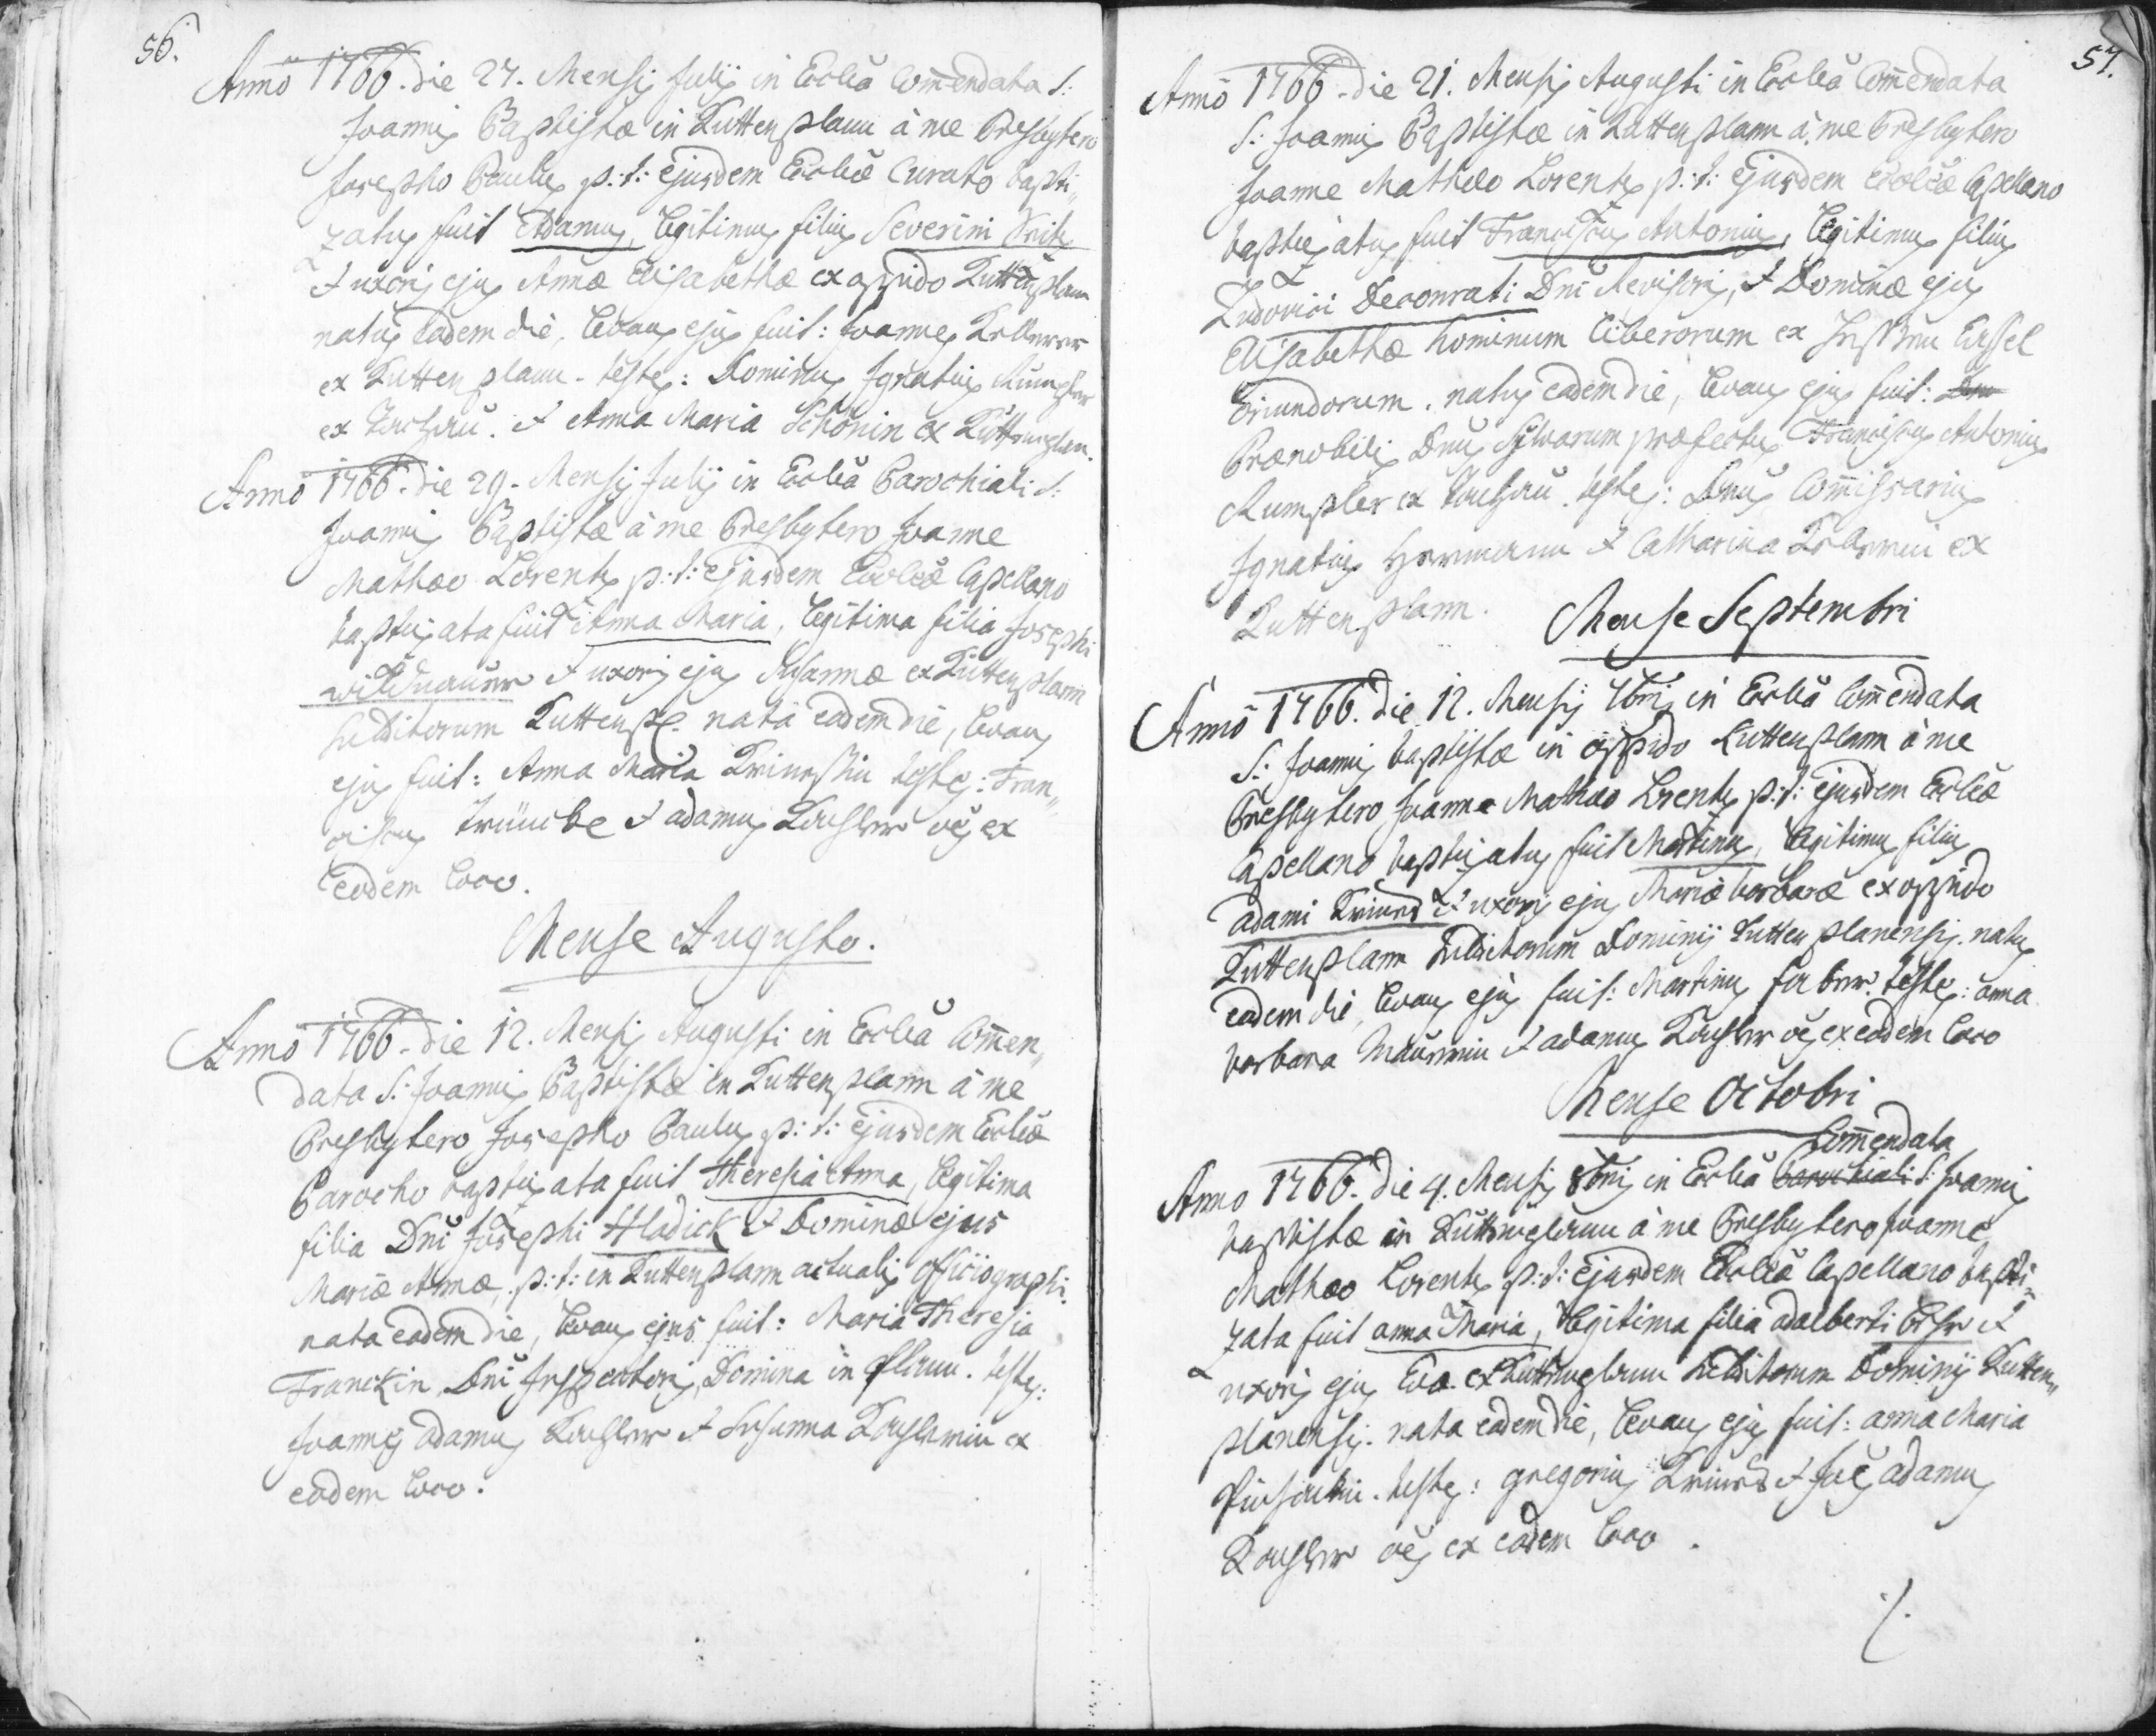 56.
Anno 1766. die 27. Mensis Julij in Eccliâ Commendata S:
Joannis Baptistæ in Kuttenplann à me Presbytero
Josepho Paulus p: t: ejusdem Eccliæ Curato bapti„
zatus fuit Adamus, legitimus filius Severini
& uxoris ejus Annæ Elisabethæ ex oppido Kuttenplann
natus eadem die, levans ejus fuit: Joannes
ex Kuttenplann. testes: Dominus Ignatius Rumpler
ex Tachau. & Anna Maria Schönin ex Kuttenplan.
Anno 1766. die 29. Mensis Julij in Eccliâ Parochiali S:
Joannis Baptistæ à me Presbytero Joanne
Mathæo Lorentz p: t: ejusdem Eccliæ Capellano
baptizata fuit Anna Maria, legitima filia Josephi
Wildnauer & uxoris ejus Susannæ ex Kuttenplann
subditorum Kuttenpl. nata eadem die, levans
ejus fuit: Anna Maria testes: Fran„
ciscus & adamus Kochler oes ex
eodem loco.
Mense Augusto.
Anno 1766. die 12. Mensis Augusti in Eccliâ Commen„
data S: Joannis Baptistæ in Kuttenplann à me
Presbytero Josepho Paulus p: t: ejusdem Eccliæ
Parocho baptizata fuit Theresia Anna, legitima
filia Dni Josephi Hladick & Dominæ ejus
Mariæ Annæ, p: t: in Kuttenplann actualis Officiographi.
nata eadem die, levans ejus fuit: Maria Theresia
Franckin Dni Inspectoris Domina in Plann. testes:
Joannes adamus Kochler & Susanna Kochlerin ex
eodem loco.
57.
Anno 1766. die 21. Mensis Augusti in Eccliâ Commendata
S: Joannis Baptistæ in Kuttenplann à me Presbytero
Joanne Mathæo Lorentz p: t: ejusdem Eccliæ Capellano
baptizatus fuit Franciscus Antonius, legitimus filius
Ludovici Deconrati Dni Revisoris, & Dominæ ejus
Elisabethæ hominum liberorum ex
oriundorum. natus eadem die, levans ejus fuit: Dnus
Prænobilis Dnus Sylvarum præfectus Franciscus Antonius
Rumpler ex Tachau. testes: Dnus Commissarius
Ignatius Hermann & Catharina ex
Kuttenplann.
Mense Septembri
Anno 1766. die 12. Mensis 7bris in Eccliâ Commendata
S: Joannis baptistæ in oppido Kuttenplann à me
Presbytero Joanne Mathæo Lorentz p: t: ejusdem Eccliæ
Capellano baptizatus fuit Martinus, legitimus filius
adami & uxoris ejus Mariæ barbaræ ex oppido
Kuttenplann subditorum Dominij Kuttenplanensis. natus
eadem die, levans ejus fuit: Martinus Faber. testes: anna
barbara Maurerin & adamus Kochler oes ex eodem loco
Mense Octobri
Anno 1766. die 4. Mensis 8bris in Eccliâ Parochiali Commendata S: Joannis
baptistæ in Kuttenplann à me Presbytero Joanne
Mathæo Lorentz p: t: ejusdem Eccliæ Capellano bapti„
zata fuit anna Maria, legitima filia adalberti &
uxoris ejus Evæ ex Kuttenplann subditorum Dominij Kutten„
planensis. nata eadem die, levans ejus fuit: anna Maria
testes: gregorius & Joes adamus
Kochler oes ex eodem loco.
./.